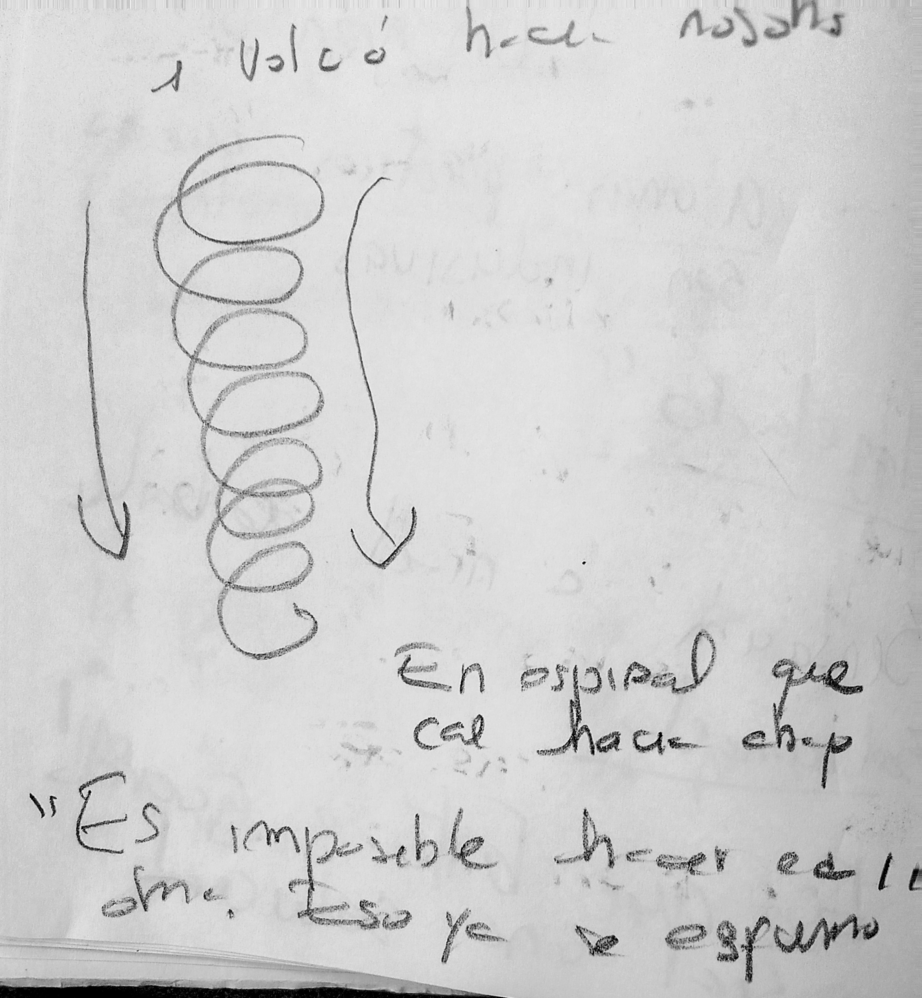 y volcó hacia nosotros
En espiral que
cae hacia abajo
"Es imposible hacer esa
obra. Eso ya se esfumó"